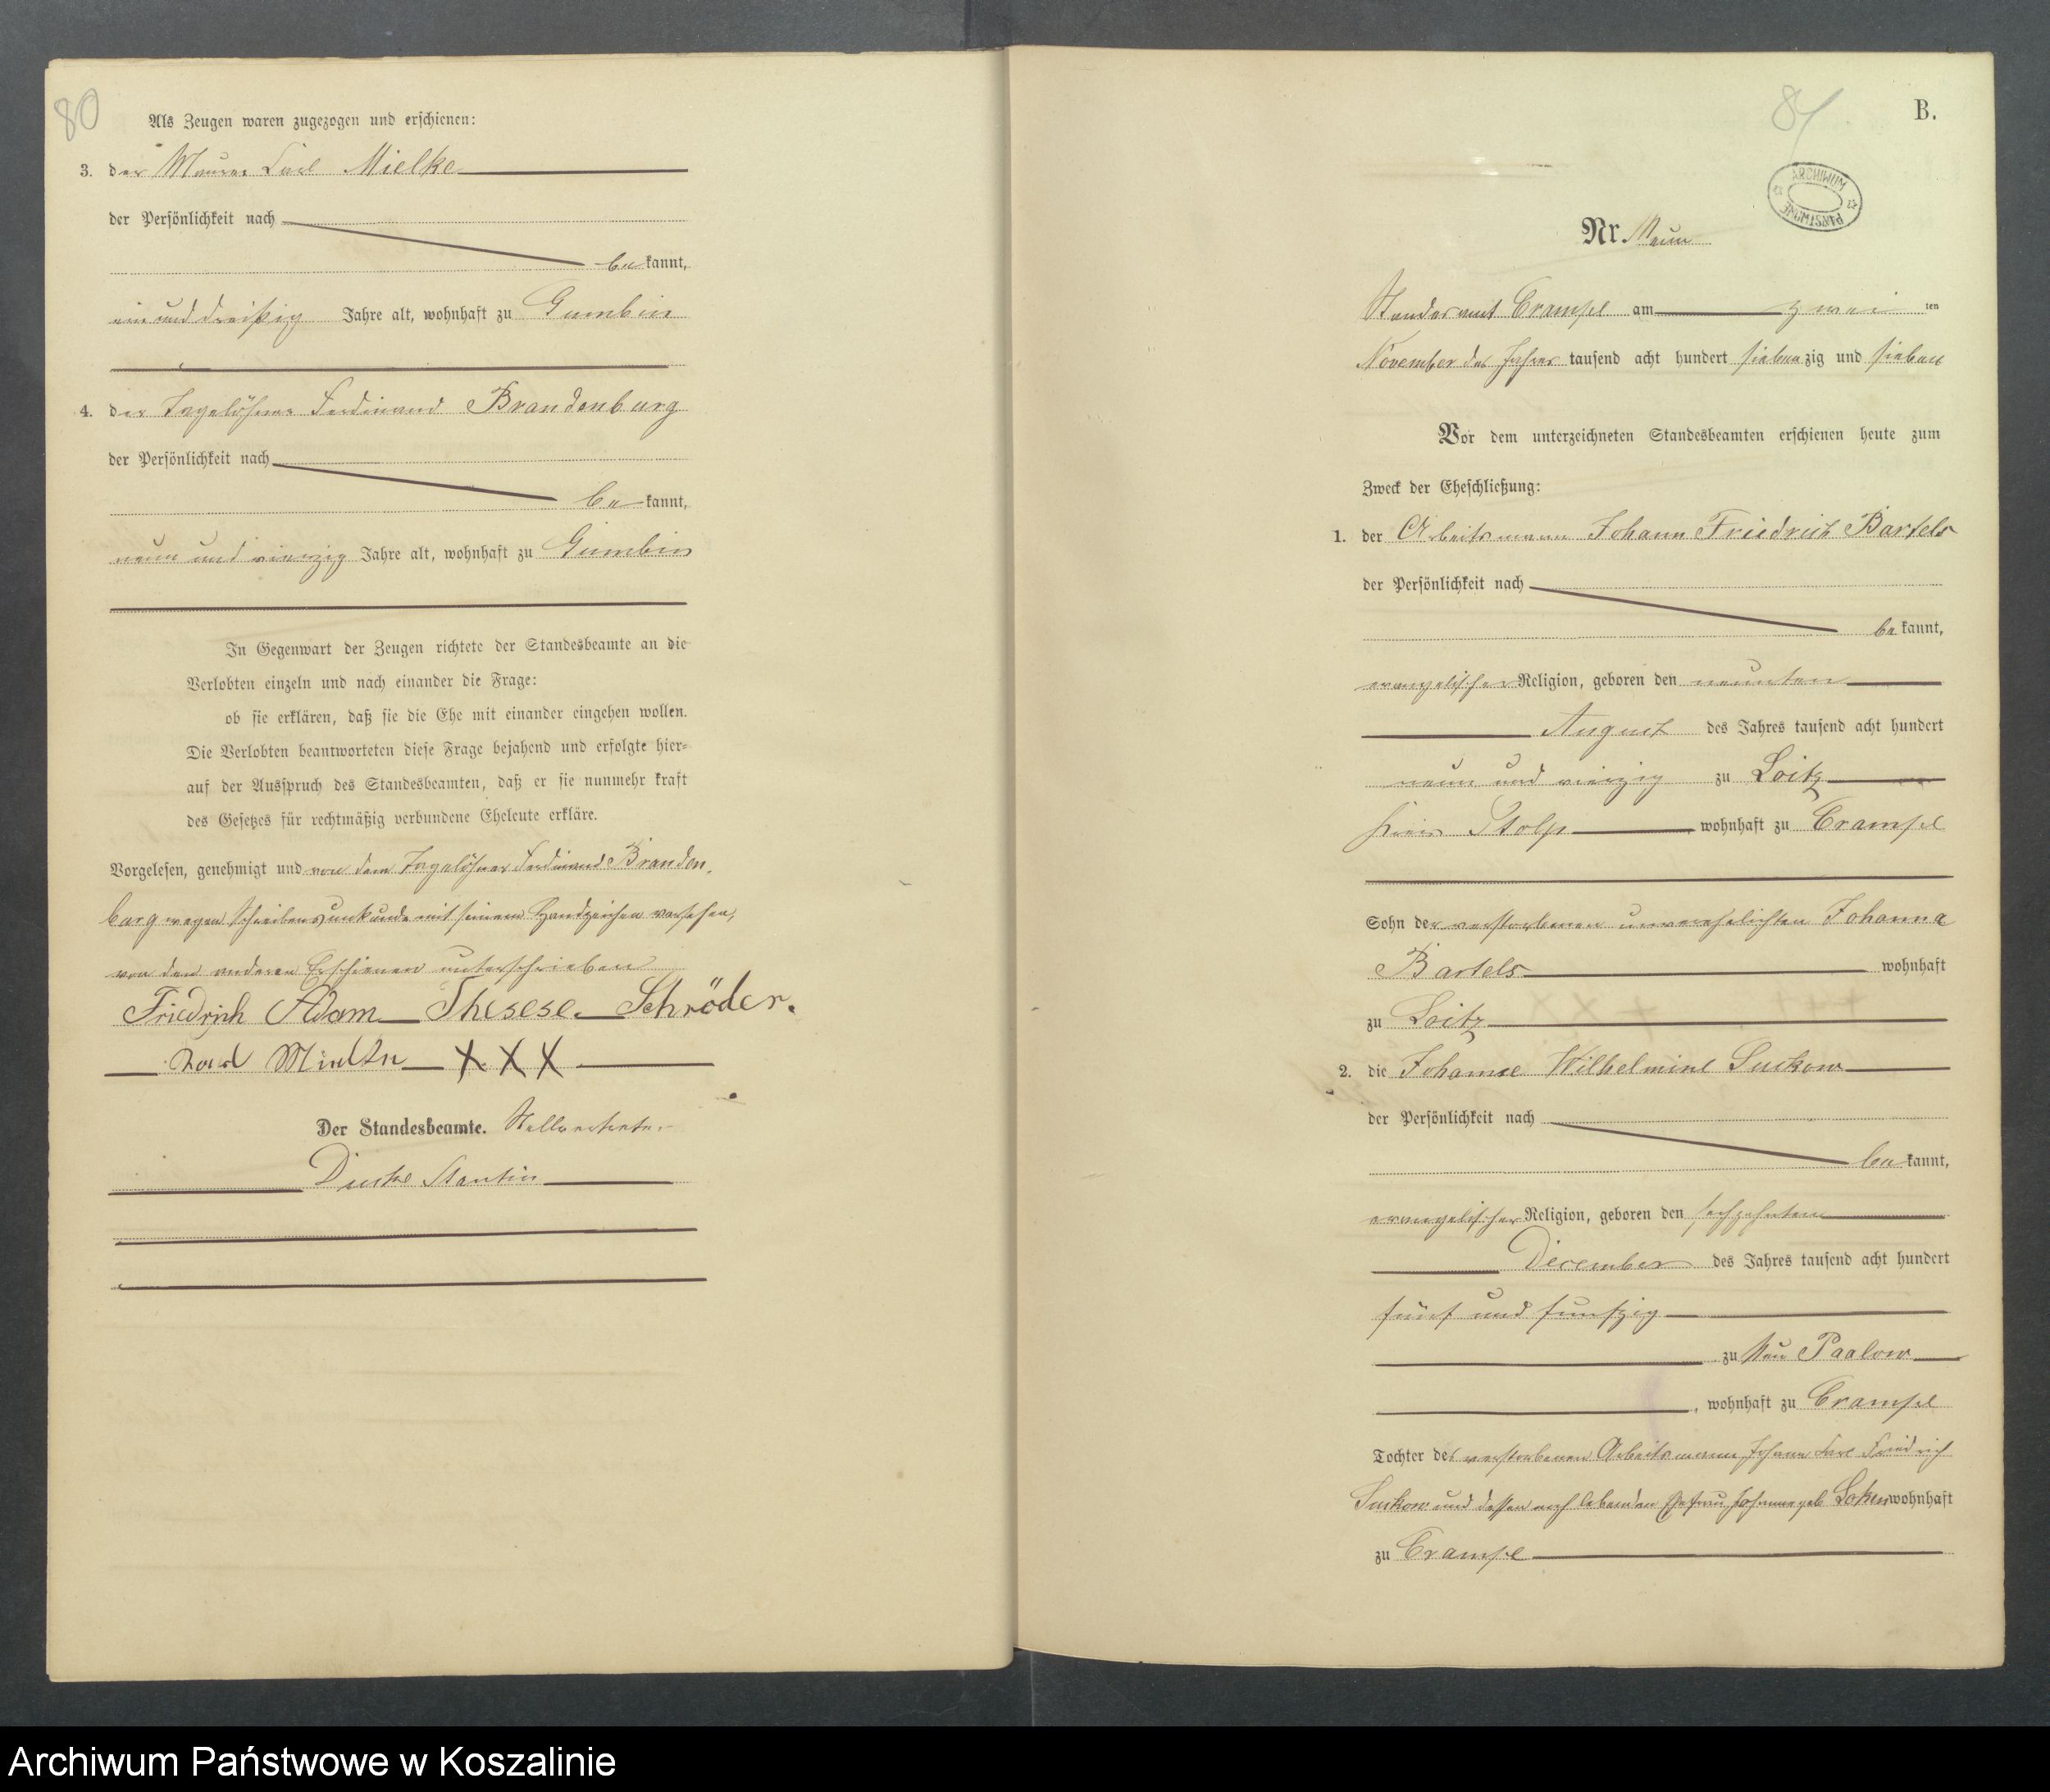 80
Als Zeugen waren zugezogen und erschienen:
3. der Maurer Carl Mielke
der Persönlichkeit nach
bekannt,
ein und dreißig Jahre alt, wohnhaft zu Gumbin
4. der Tagelöhner Ferdinand Brandenburg
der Persönlichkeit nach
bekannt,
neun und vierzig Jahre alt, wohnhaft zu Gumbin
In Gegenwart der Zeugen richtete der Standesbeamte an die
Verlobten einzeln und nach einander die Frage:
ob sie erklären, daß sie die Ehe mit einander eingehen wollen.
Die Verlobten beantworteten diese Frage bejahend und erfolgte hier-
auf der Ausspruch des Standesbeamten, daß er sie nunmehr kraft
des Gesetzes für rechtmäßig verbundene Eheleute erkläre.
Vorgelesen, genehmigt und von dem Tagelöhner Ferdinand Branden-
burg wegen Schreibensunkunde mit seinem Handzeichen versehen,
von den anderen Erschienen unterschrieben
Friedrich Adam Therese Schröder.
Carl Mielke XXX
Der Standesbeamte. Stellvertreter
B.
ARCHIWUM PAŃSTWOWE
Nr. Neun
Standesamt Crampe am zwei ten
November des Jahres tausend acht hundert siebenzig und sieben
Vor dem unterzeichneten Standesbeamten erschienen heute zum
Zweck der Eheschließung:
1. der Arbeitsmann Johann Friedrich Bartels
der Persönlichkeit nach
bekannt,
evangelischer Religion, geboren den neunten
August des Jahres tausend acht hundert
neun und vierzig zu Loitz
Kreis Stolp wohnhaft zu Crampe
Sohn der verstorbenen unverehelichten Johanna
Bartels wohnhaft
zu Loitz
2. die Johanne Wilhelmine Suckow
der Persönlichkeit nach
bekannt,
evangelischer Religion, geboren den sechzehnten
December des Jahres tausend acht hundert
fünf und funfzig
zu Neu Paalow
, wohnhaft zu Crampe
Tochter des verstorbenen Arbeitsmann Johann Carl Friedrich
Suckow und dessen noch lebenden Ehefrau Johanne geb. wohnhaft
zu Crampe
Archiwum Państwowe w Koszalinie